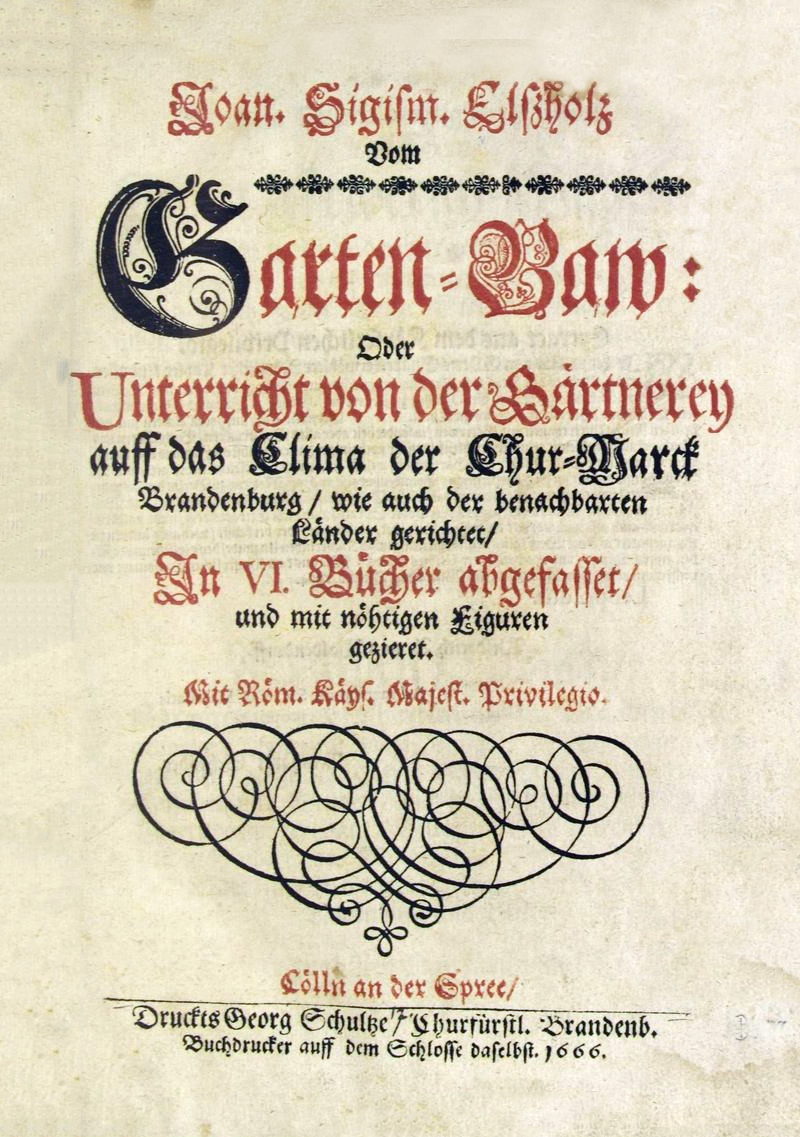 Joan. Sigiſm. Elſzholtz
Vom
Garten-Baw:
Oder
Unterricht von der Gärtnerey
auff das Clima der Chur-Marck
Brandenburg / wie auch der benachbarten
Länder gerichtet/
In VI. Bücher abgefaſſet/
und mit nöhtigen Figuren
gezieret.
Mit Röm. Käyſ. Majeſt. Privilegio.
Cölln an der Spree/
Druckts Georg Schultze / Churfürſtl. Brandenb.
Buchdrucker auff dem Schloſſe daſelbſt. 1666.